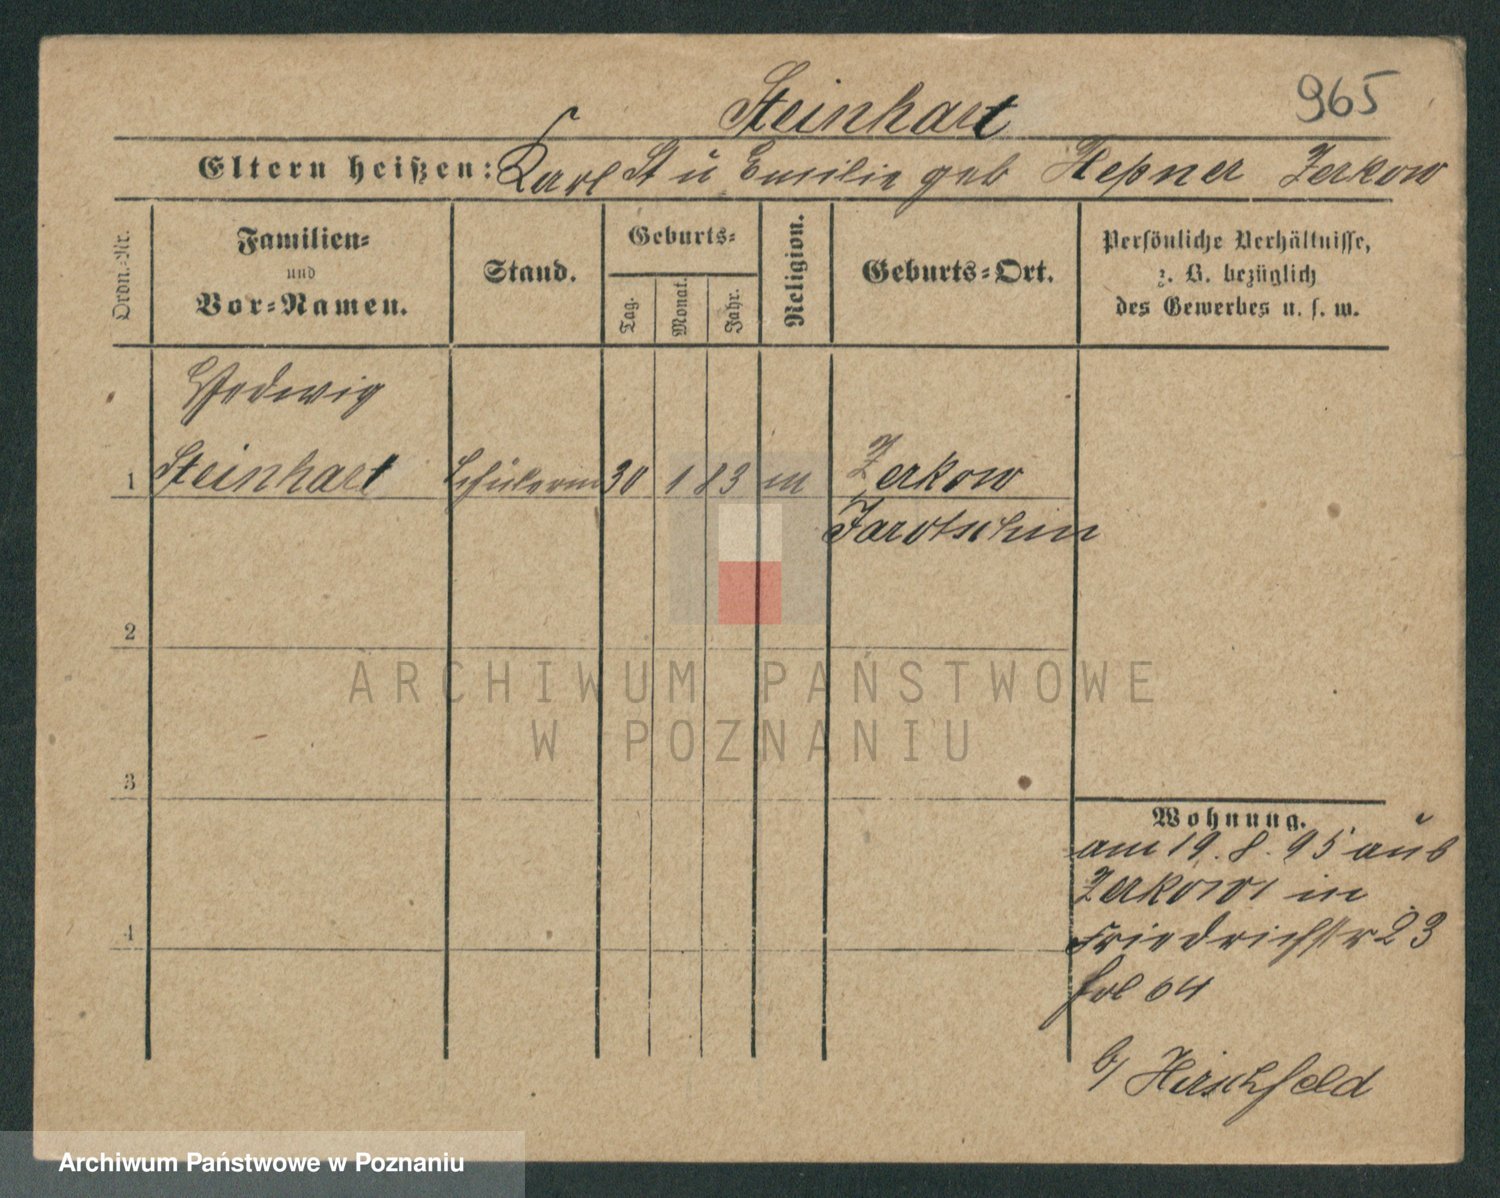 965
Steinhart
Eltern heißen: Karl St u Emilie geb Heßner Zerkow
Ordn.-Nr.
Familien-
und
Vor-Namen.
Stand.
Geburts-
Tag.
Monat.
Jahr.
Religion.
Geburts-Ort.
Persönliche Verhältnisse,
z. B. bezüglich
des Gewerbes u. s. w.
Hedwig
1 Steinhart Schülerin 30 1 83 m Zerkow
Jarotschin
2
3
4
Wohnung.
am 19. 8. 95 aus
Zerkow in
Friedrichstr 23
fol 64
b/ Hirschfeld
ARCHIWUM PAŃSTWOWE
W POZNANIU
Archiwum Państwowe w Poznaniu